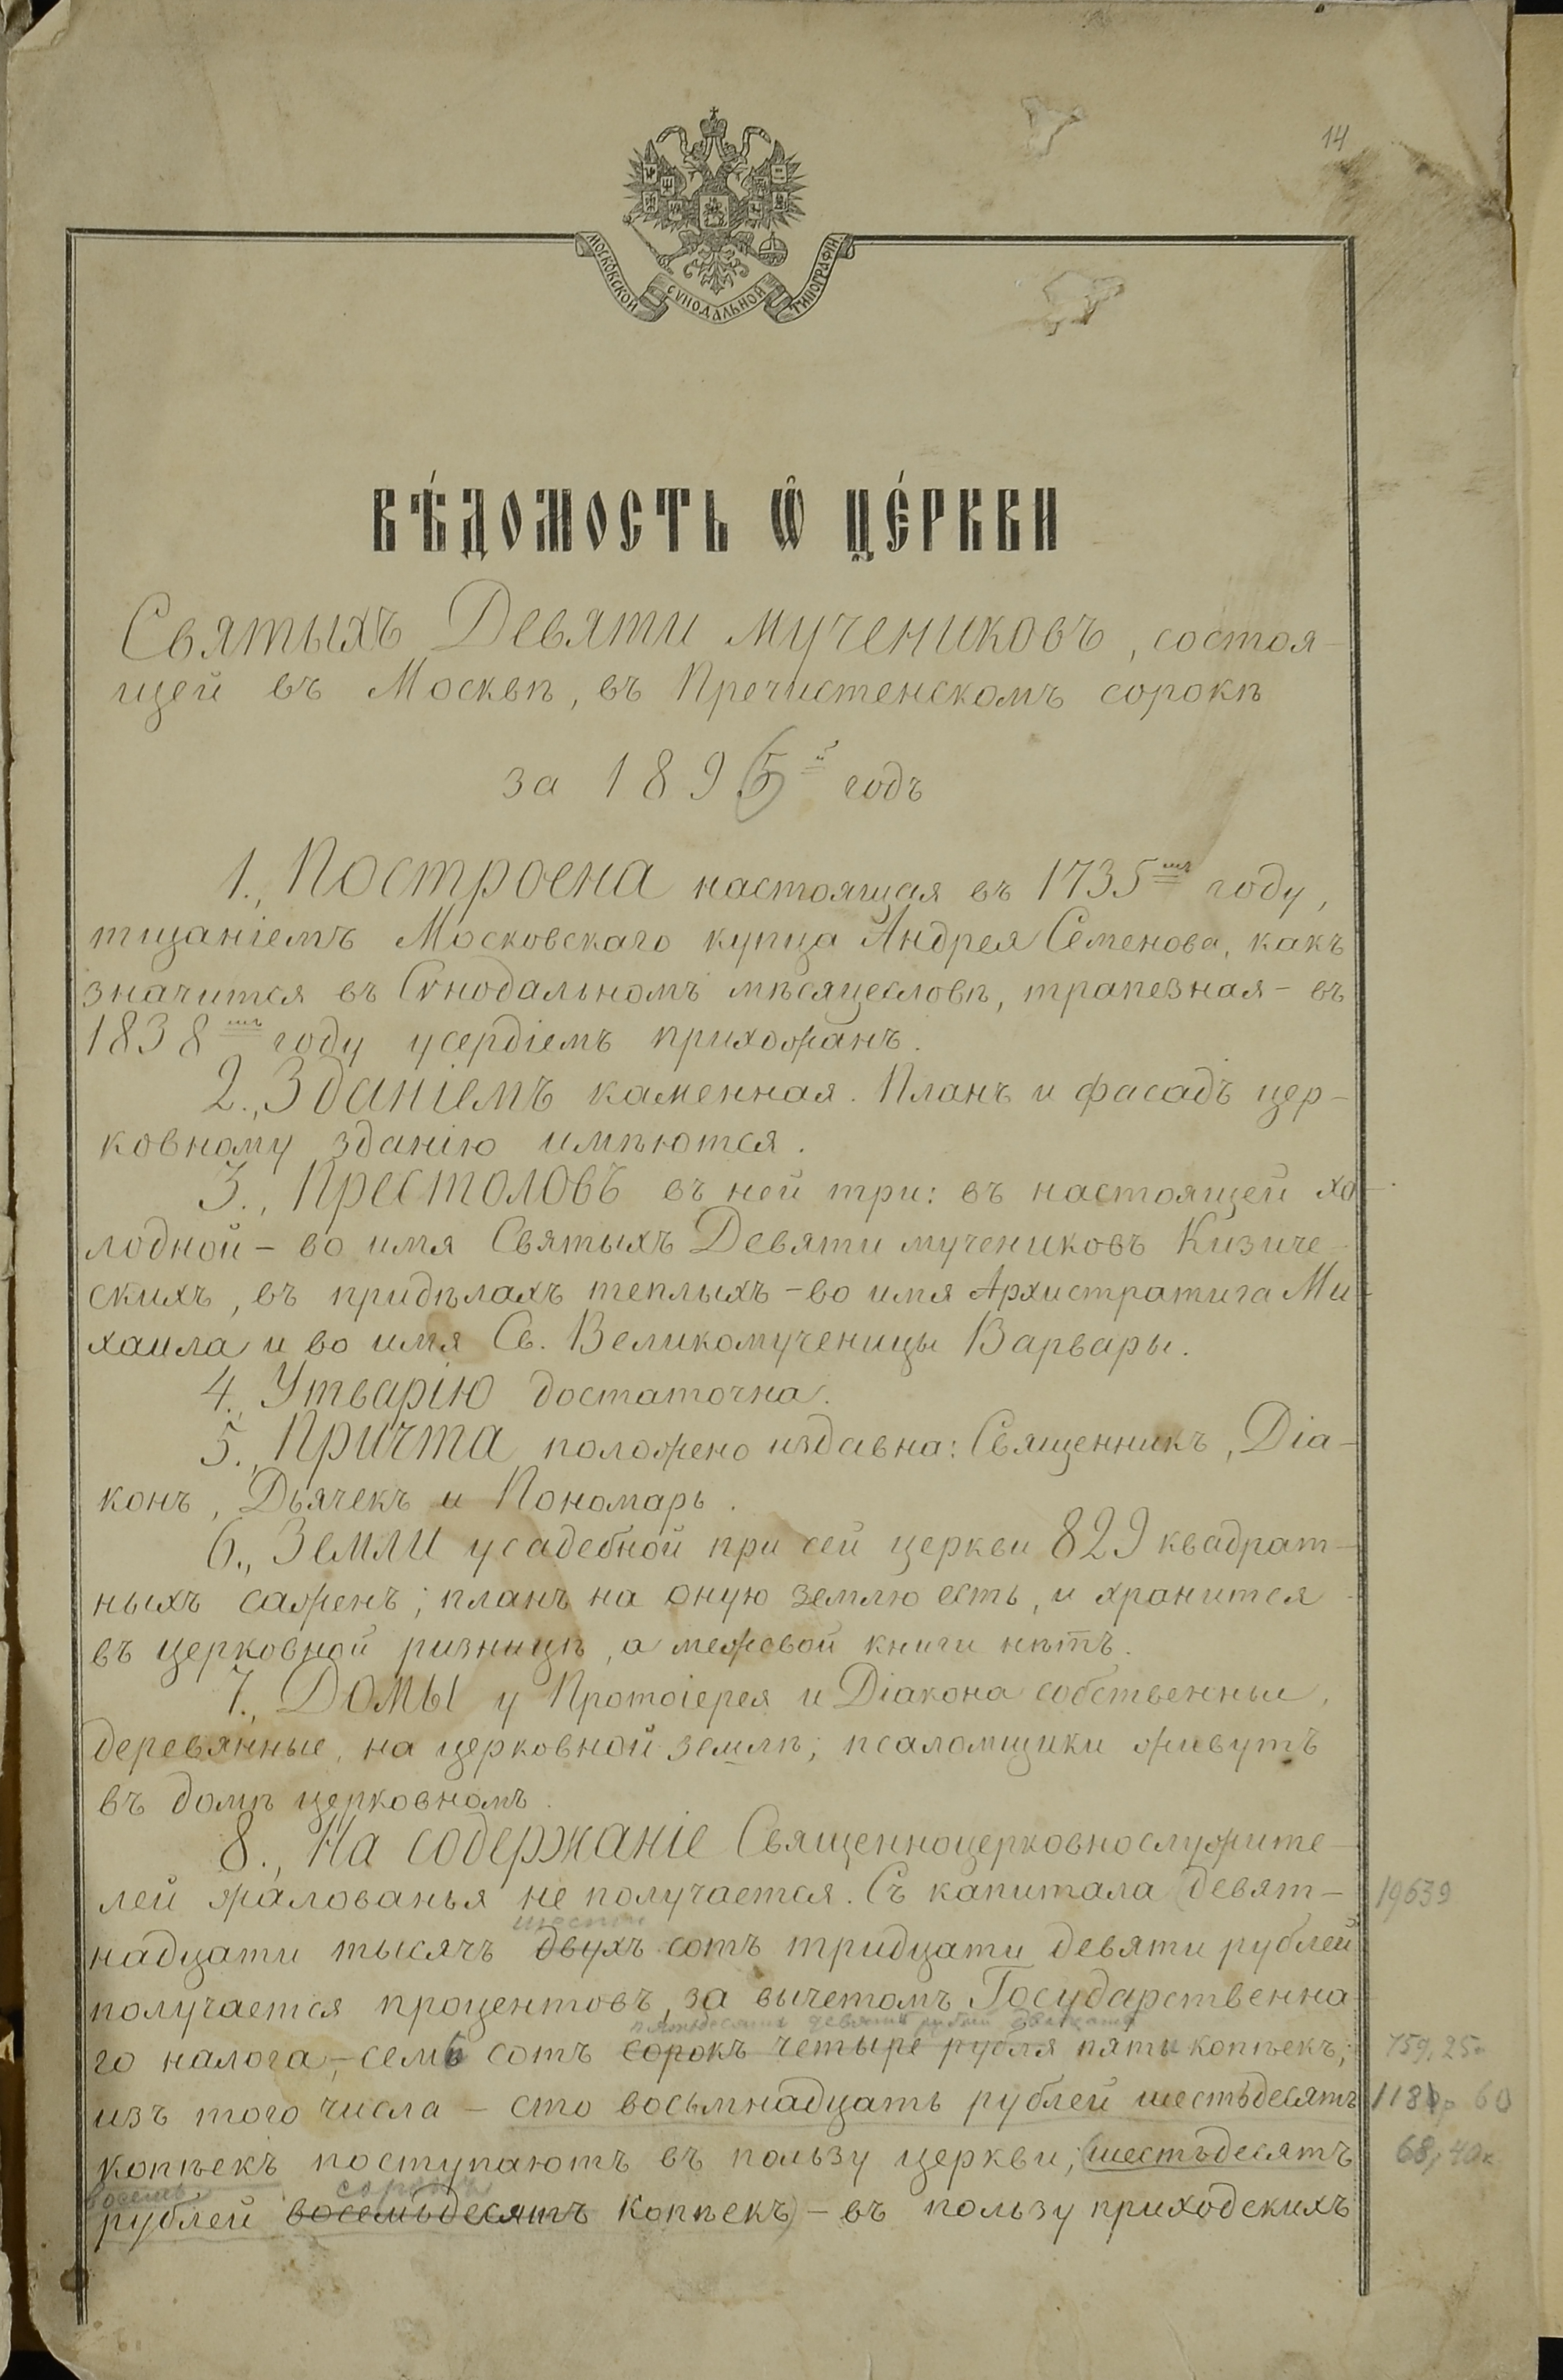 14
МОСКОВСКОЙ СѴНОДАЛЬНОЙ ТИПОГРАФІИ
ВѢ́ДОМОСТЬ Ѽ ЦЕ́РКВИ
Святыхъ Девяти мучениковъ, состоя-
щей въ Москвѣ, въ Пречистенскомъ сорокѣ
за 1895й годъ
1., Построена настоящая въ 1735мъ году,
тщаніемъ Московскаго купца Андрея Семенова, какъ
значится въ Сѵнодальномъ мѣсяцесловѣ, трапезная - въ
1838мъ году усердіемъ прихожанъ.
2., Зданіемъ каменная. Планъ и фасадъ цер-
ковному зданію имѣются.
3., Престоловъ въ ней три: въ настоящей хо-
лодной - во имя Святыхъ Девяти мучениковъ Кизиче-
скихъ, въ придѣлахъ теплыхъ - во имя Архистратига Ми-
хаила и во имя Св. Великомученицы Варвары.
4., Утварію достаточна.
5., Причта положено издавна: Священникъ, Діа-
конъ, Дьячекъ и Пономарь.
6., Земли усадебной при сей церкви 829 квадрат-
ныхъ сажень; планъ на оную землю есть, и хранится
въ церковной ризницѣ, а межевой книги нѣтъ.
7., Домы у Протоіерея и Діакона собственные,
деревянные, на церковной землѣ; псаломщики живутъ
въ домѣ церковномъ.
8., На содержаніе Священноцерковнослужите-
лей жалованья не получается. Съ капитала девят- 19639
шести
надцати тысячъ двухъ сотъ тридцати девяти рублей
получается процентовъ, за вычетомъ Государственна-
пятьдесятъ девять рублей двадцать
го налога, - семь сотъ сорокъ четыре рубля пять копѣекъ; 759, 25к
изъ того числа - сто восьмнадцать рублей шестьдесятъ 118р 60
копѣекъ поступаютъ въ пользу церкви; (шестьдесятъ 68, 40к
восемь сорокъ
рублей восемьдесятъ копѣекъ) - въ пользу приходскихъ